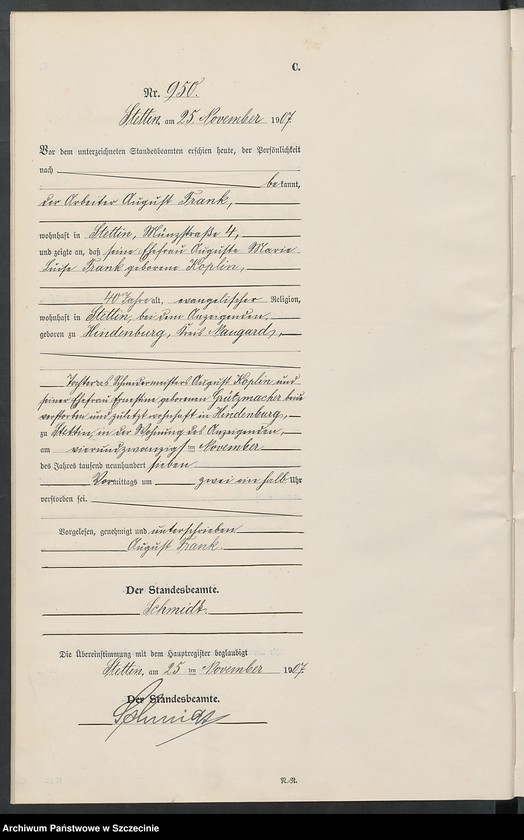 C.
Nr. 950.
Stettin, am 25. November 1907.
Vor dem unterzeichneten Standesbeamten erschien heute, der Persönlichkeit
nach
bekannt,
der Arbeiter August Frank,
wohnhaft in Stettin, Münzstraße 4,
und zeigte an, daß seine Ehefrau Auguste Marie
Luise Frank geborene Koplin,
40 Jahre alt, evangelischer Religion,
wohnhaft in Stettin, bei dem Anzeigenden,
geboren zu Hindenburg, Kreis Naugard,
Tochter des Schneidermeisters August Koplin und
seiner Ehefrau Ernestine geborenen Grützmacher beide
verstorben und zuletzt wohnhaft in Hindenburg,
zu Stettin, in der Wohnung des Anzeigenden,
am vierundzwanzigsten November
des Jahres tausend neunhundert sieben
Vormittags um zwei ein halb Uhr
verstorben sei.
Vorgelesen, genehmigt und unterschrieben
August Frank.
Der Standesbeamte.
Schmidt.
Die Übereinstimmung mit dem Hauptregister beglaubigt
Stettin, am 25 ten November 1907.
Der Standesbeamte.
Schmidt
N.-R.
Archiwum Państwowe w Szczecinie